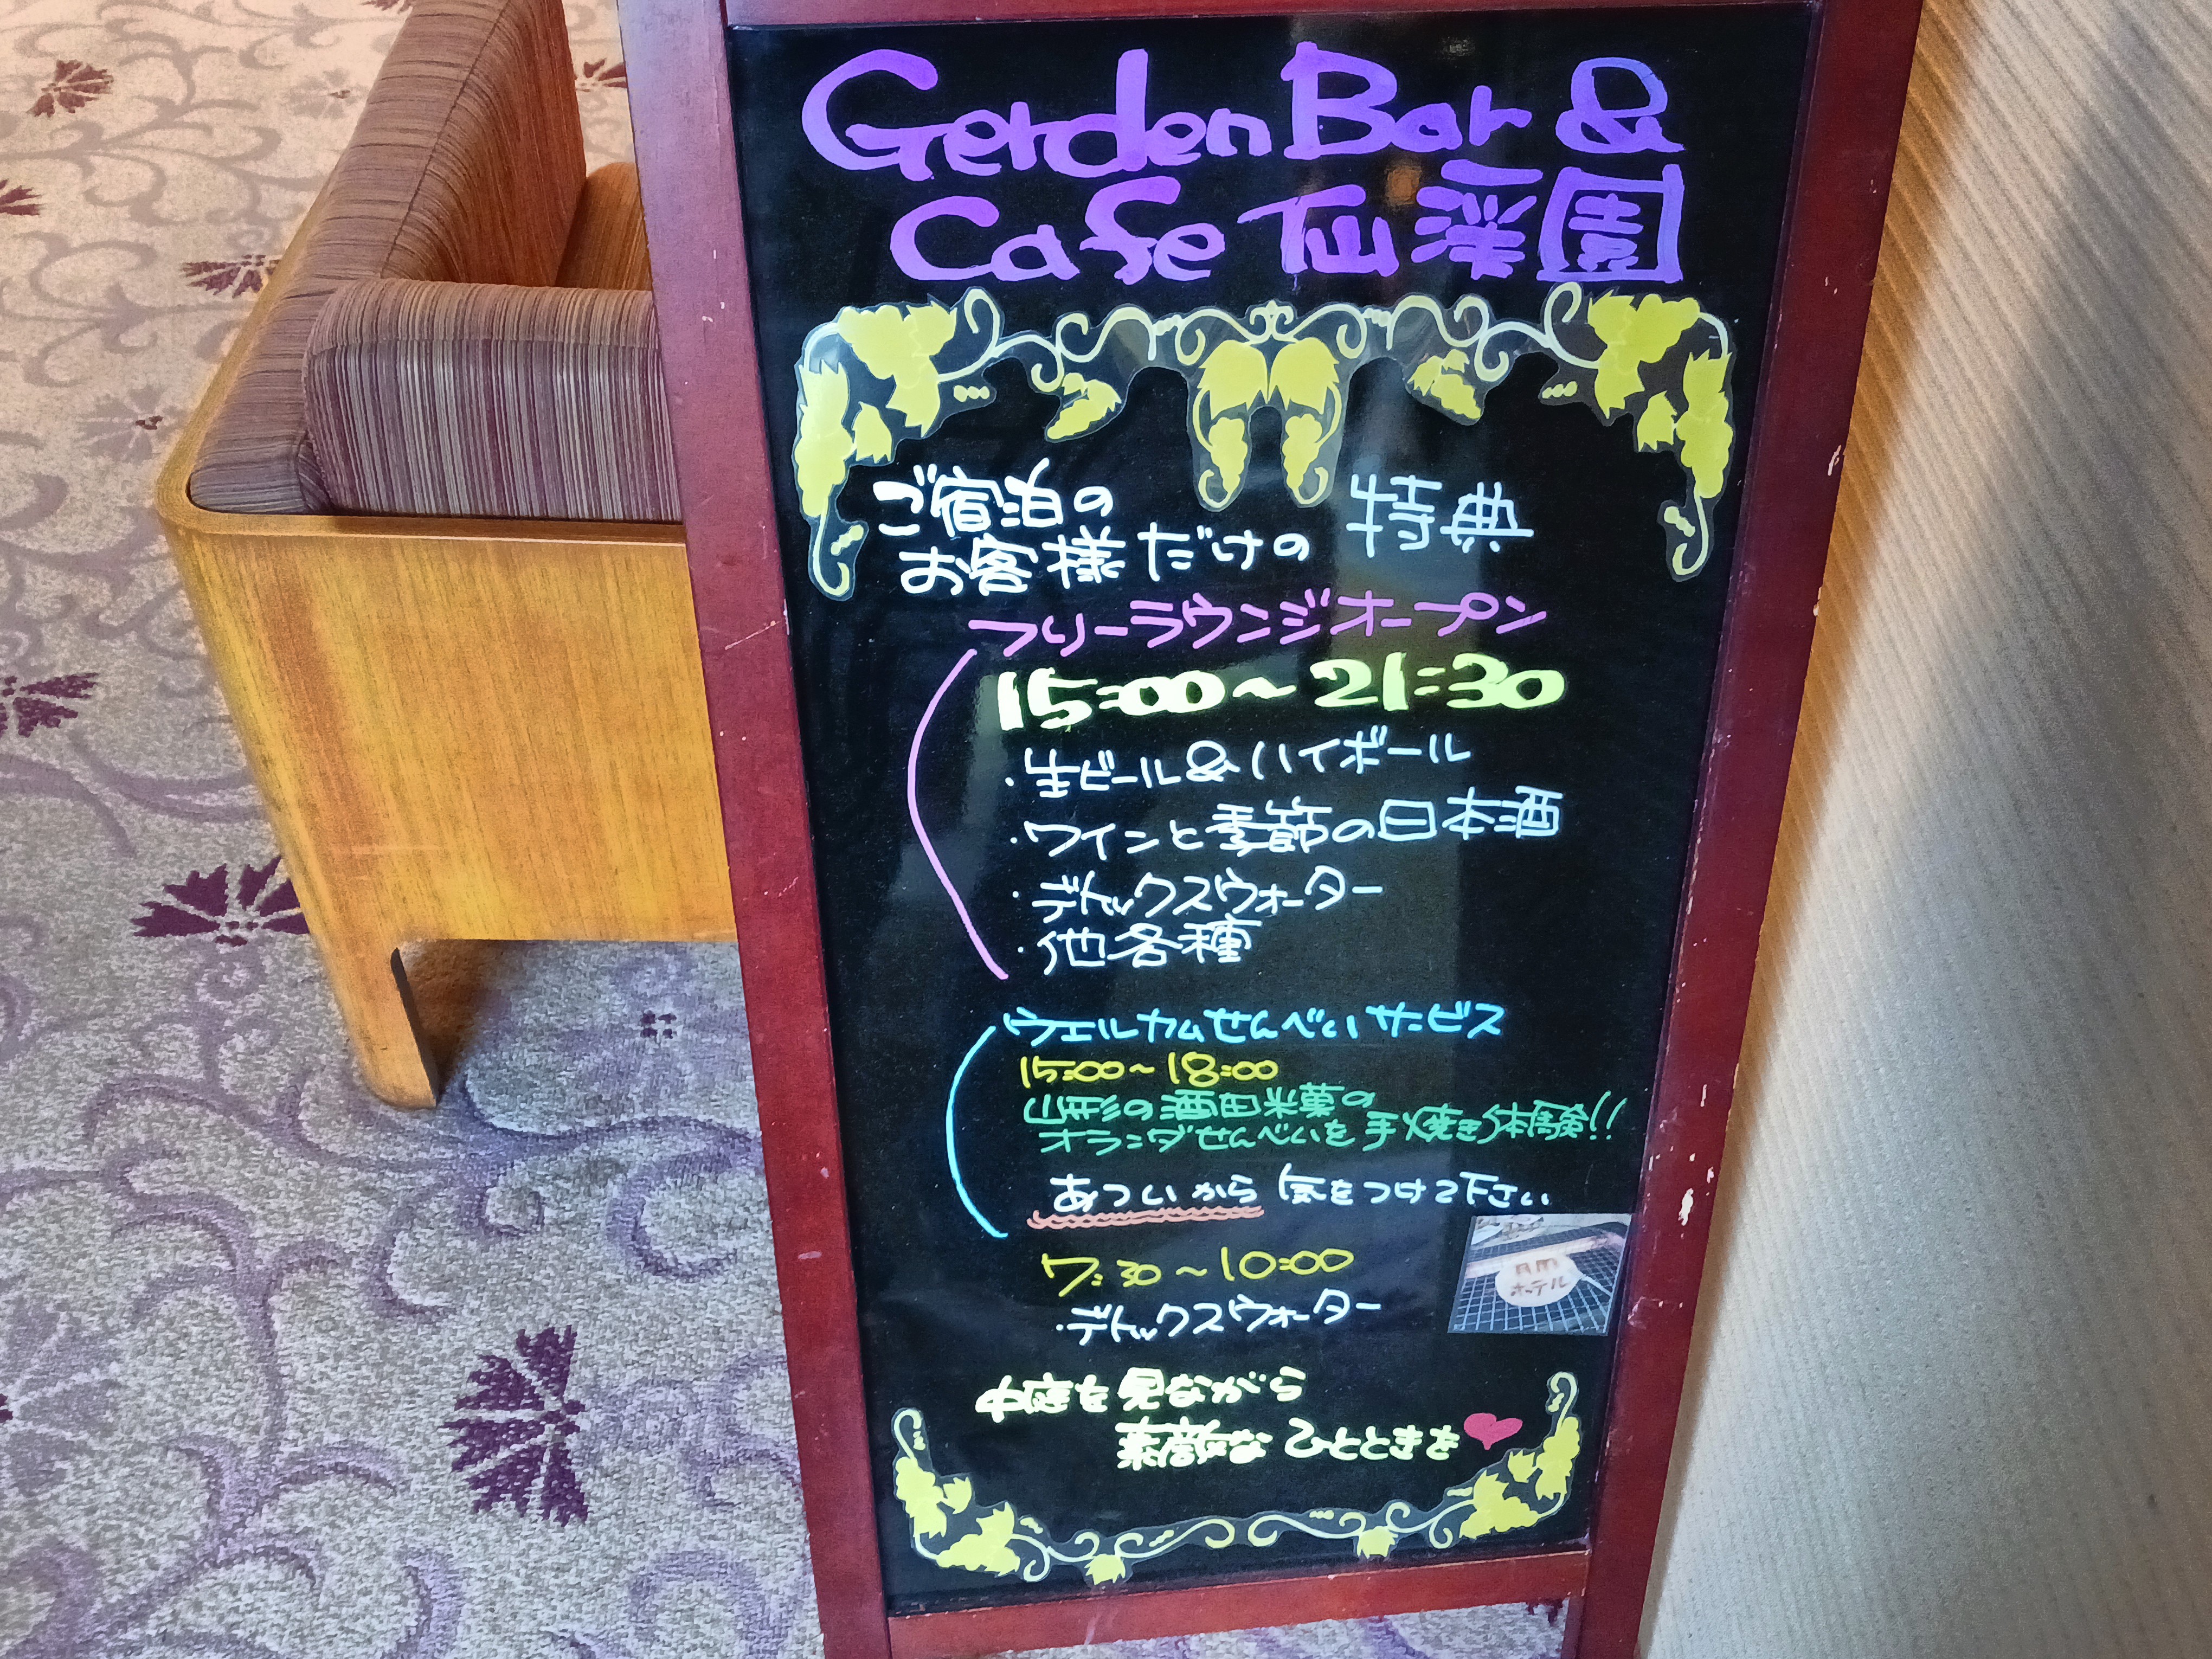 Gerden Bar &
Cafe 仙渓園
ご宿泊の
お客様だけの 特典
フリーラウンジオープン
15:00～21:30
・生ビール&ハイボール
・ワインと季節の日本酒
・デトックスウォーター
・他各種
ウェルカムせんべいサービス
15:00～18:00
山形の酒田米菓の
オランダせんべいを手焼き体験!!
あついから気をつけて下さい
7:30～10:00
・デトックスウォーター
中庭を見ながら
素敵なひとときを
ホテル